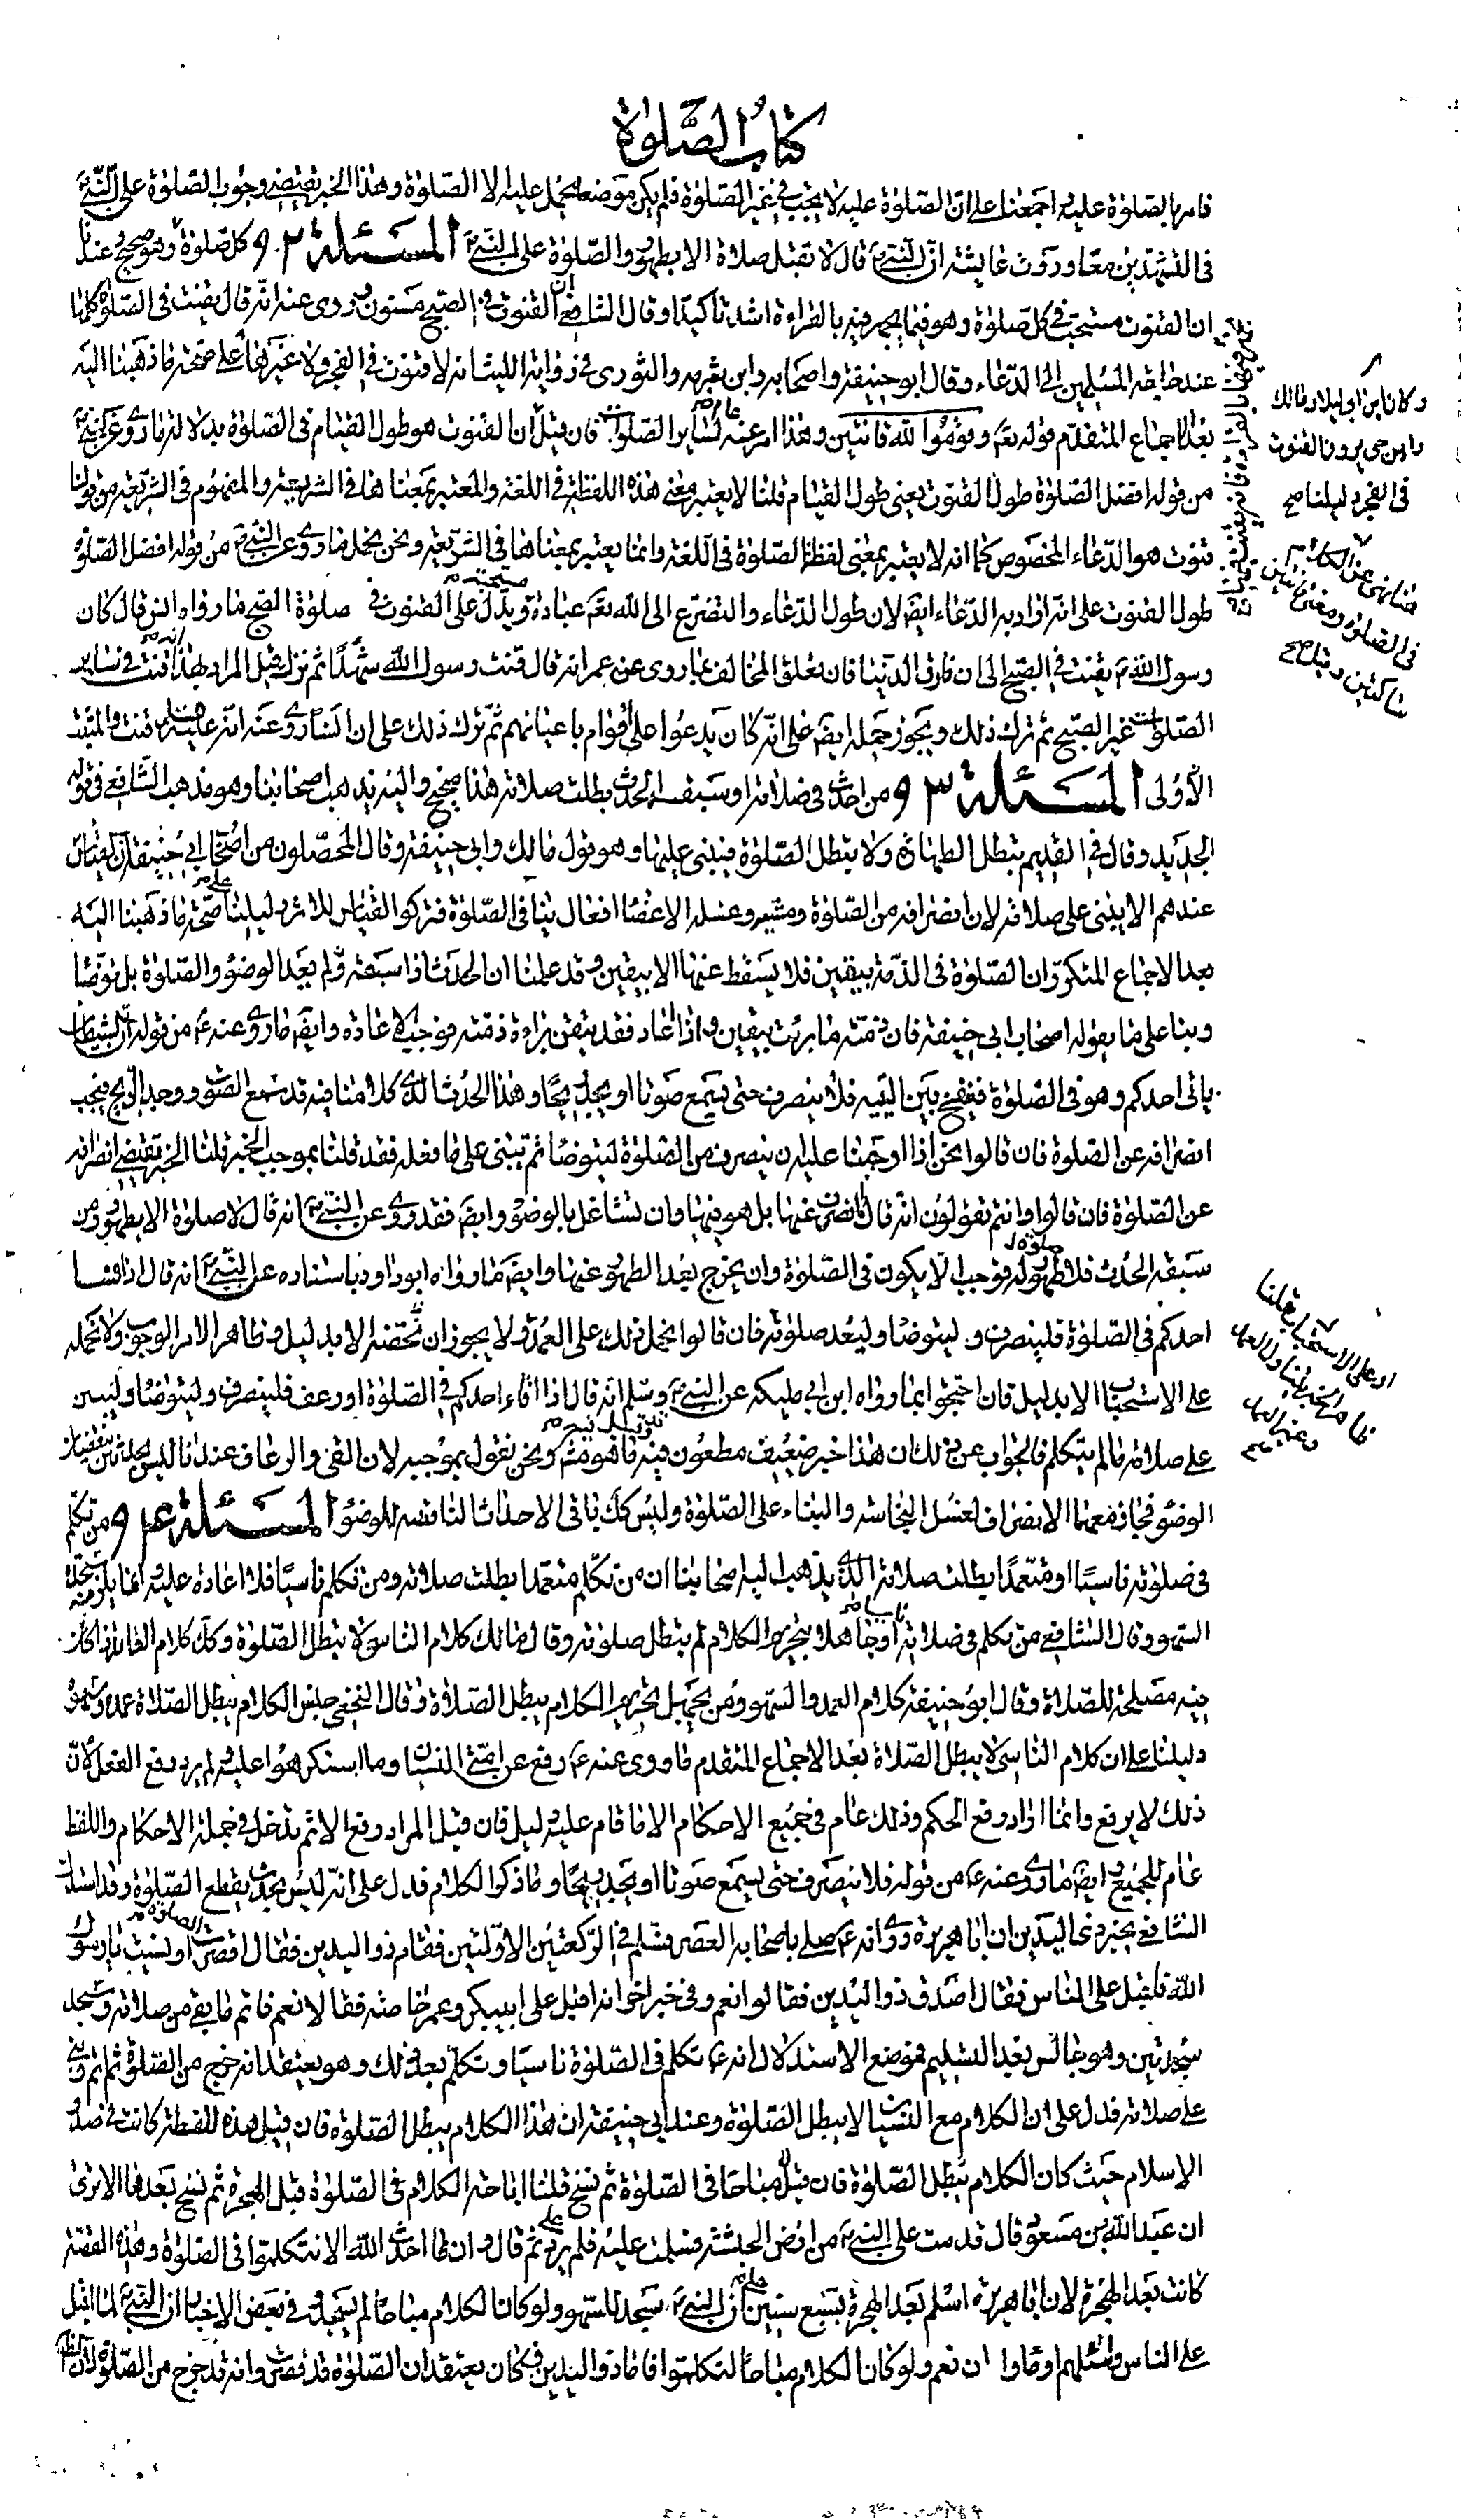 كتاب الصلوة
فامر بالصلوة عليه اجمعنا على ان الصلوة عليه لا يجب في غير الصلوة فلم يكن موضع يحمل عليه الا الصلوة وهذا الخبر يقتضى وجوب الصلوة على النبي
في التشهدين معا وروت عايشة ان النبي قال لا تقبل صلاة الا بطهور والصلوة على النبي المسئلة ٩٢ كل صلوة وهو صحيح عندنا
ان القنوت مستحب في كل صلوة وهو فيما يجهر فيه بالقراءة اشد تاكيدا وقال الشافعي ان القنوت في الصبح مسنون وروى عنه انه قال يقنت في الصلوة كلها
عند حاجة المسلمين الى الدعاء وقال ابو حنيفة واصحابه وابن شبرمه والثورى في رواية الليث انه لا قنوت في الفجر ولا غيرها على صحة ما ذهبنا اليه
بعد الاجماع المتقدم قوله تع وقوموا لله قانتين وهذا امر عام لساير الصلوات فان قيل ان القنوت هو طول القيام في الصلوة بدلالة ما روى عن النبي
من قوله افضل الصلوة طول القنوت يعنى طول القيام قلنا لا يعتبر معنى هذه اللفظة في اللغة والمعتبر بمعناها في الشريعة والمفهوم في الشريعة من قولنا
قنوت هو الدعاء المخصوص كما انه لا يعتبر بمعنى لفظ الصلوة في اللغة وانما يعتبر بمعناها في الشريعة ونحن نحمل ما روى عن النبي من قوله افضل الصلوة
طول القنوت على انه اراد به الدعاء ايض لان طول الدعاء والتضرع الى الله تع عبادة ويدل على القنوت في صلوة الصبح ما رواه انس قال كان
رسول الله يقنت في الصبح الى ان فارق الدنيا فان تعلق المخالف بما روى عن عمر انه قال قنت رسول الله شهرا ثم ترك قيل المراد بهذا انه قنت في ساير
الصلوات غير الصبح ثم ترك ذلك ويجوز حمله ايض على انه كان يدعوا على اقوام باعيانهم ثم ترك ذلك على ان انسا روى عنه انه قنت
الاولى المسئلة ٩٣ من احدث في صلاته او سبقه الحدث بطلت صلاته هذا صحيح واليه يذهب اصحابنا وهو مذهب الشافعي في قوله
الجديد وقال في القديم تبطل الطهارة ولا يبطل الصلوة فيبنى عليها وهو قول مالك وابي حنيفة وقال المحصلون من اصحاب ابي حنيفة ان القياس
عندهم الا يبنى على صلاته لان انصرافه من الصلوة ومشيه وغسله الاعضا افعال ينافى الصلوة فتركوا القياس للاثر دليلنا على صحة ما ذهبنا اليه
بعد الاجماع المتكرر ان الصلوة في الذمة بيقين فلا يسقط عنها الا بيقين وقد علمنا ان الحدث اذا سبقه ولم يعد الوضوء والصلوة بل توضا
وبنا على ما يقوله اصحاب ابي حنيفة فان ذمته ما برئت بيقين واذا اعاد فقد تيقن براءة ذمته فوجب الاعادة وايض ما روى عنه ع من قوله ان الشيطان
ياتى احدكم وهو في الصلوة فينفخ بين اليتيه فلا ينصرف حتى يسمع صوتا او يجد ريحا وهذا الحدث الذى كلامنا فيه قد سمع الصوت ووجد الريح فيجب
انصرافه عن الصلوة فان قالوا نحن اذا اوجبنا عليه ان ينصرف من الصلوة ليتوضا ثم يبنى على ما فعله فقد قلنا بموجب الخبر قلنا الخبر يقتضى انصرافه
عن الصلوة فان قالوا وانتم تقولون انه قال انصرف عنها بل هو فيها وان تشاغل بالوضوء وايض فقد روى عن النبي انه قال لا صلوة الا بطهور ومن
سبقه الحدث فلا طهور له فوجب الا يكون في الصلوة وان يخرج بعد الطهور عنها وايض ما رواه ابو داود باسناده عن النبي انه قال اذا فسا
احدكم في الصلوة فلينصرف وليتوضا وليعد صلوته فان قالوا نحمل ذلك على العمد ولا يجوز ان تخصه الا بدليل وظاهر الامر الوجوب ولا نحمله
على الاستحباب الا بدليل فان احتجوا بما رواه ابن ابي مليكه عن النبي وسلم انه قال اذا قاء احدكم في الصلوة او رعف فلينصرف وليتوضا وليبن
على صلاته ما لم يتكلم فالجواب عن ذلك ان هذا خبر ضعيف مطعون فيه ونحن نقول بموجبه لان القئ والرعاف عندنا ليس بحدثين ينقضان
الوضوء فجاز معهما الانصراف لغسل النجاسة والبناء على الصلوة وليس كك باقى الاحداث الناقضه للوضوء المسئلة ٩٤ من تكلم
في صلوته ناسيا او متعمدا بطلت صلاته الذى يذهب اليه اصحابنا ان من تكلم متعمدا بطلت صلاته ومن تكلم ناسيا فلا اعادة عليه انما يلزمه سجدتا
السهو وقال الشافعي من تكلم في صلاته ناسيا او جاهلا بتحريم الكلام لم يبطل صلوته وقال مالك كلام الناسى لا يبطل الصلوة وكك كلام العامد اذا كان
فيه مصلحة للصلاة وقال ابو حنيفة كلام العمد والسهو ومن يجهل تحريم الكلام يبطل الصلاة وقال النخعي جنس الكلام يبطل الصلاة عمده وسهوه
دليلنا على ان كلام الناسى لا يبطل الصلاة بعد الاجماع المتقدم ما روى عنه ع رفع عن امتى النسيان وما استكرهوا عليه ولم يرد رفع الفعل لان
ذلك لا يرفع وانما اراد رفع الحكم وذلك عام في جميع الاحكام الا ما قام عليه دليل فان قيل المراد رفع الاثم يدخل في جملة الاحكام واللفظ
عام للجميع وايض ما روى عنه ع من قوله فلا ينصرف حتى يسمع صوتا او يجد ريحا وما ذكر الكلام فدل على انه ليس بحدث يقطع الصلوة وقد استدل
الشافعي بخبر ذى اليدين ان ابا هريرة روى انه ع صلى باصحابه العصر فسلم في الركعتين الاولتين فقام ذو اليدين فقال اقصرت الصلوة او نسيت يا رسول
الله فاقبل على الناس فقال اصدق ذو اليدين فقالوا نعم وفي خبر اخر انه اقبل على ابيبكر وعمر خاصة فقالا نعم فاتم ما بقى من صلاته وسجد
سجدتين وهو جالس بعد التسليم فموضع الاستدلال انه ع تكلم في الصلوة ناسيا وتكلم بعد ذلك وهو يعتقد انه خرج من الصلوة ثم تم وبنى
على صلاته فدل على ان الكلام مع النسيان لا يبطل الصلوة وعند ابي حنيفة ان هذا الكلام يبطل الصلوة فان قيل هذه اللفظة كانت في صدر
الاسلام حيث كان الكلام يبطل الصلوة فان قيل مباحا في الصلوة ثم نسخ قلنا اباحة الكلام في الصلوة قبل الهجرة ثم نسخ بعدها الا ترى
ان عبد الله بن مسعود قال قدمت على النبي من ارض الحبشة فسلمت عليه فلم يرد على ثم قال وان مما احدث الله الا تتكلموا في الصلوة وهذه القصة
كانت بعد الهجرة لان ابا هريرة اسلم بعد الهجرة بسبع سنين على ان النبي سجد للسهو ولو كان الكلام مباحا لم يسجد وفي بعض الاخبار ان النبي لما اقبل
على الناس وسئلهم اومأوا ان نعم ولو كان الكلام مباحا لتكلموا فاما ذو اليدين فكان يعتقد ان الصلوة قد قصرت وانه قد خرج من الصلوة لان
وكان ابن ابي ليلا ومالك
وابن حى يرون القنوت
في الفجر دليلنا صح
في الصلوة ومعنى قانتين
ساكتين وقيل
او على الاستحباب قلنا